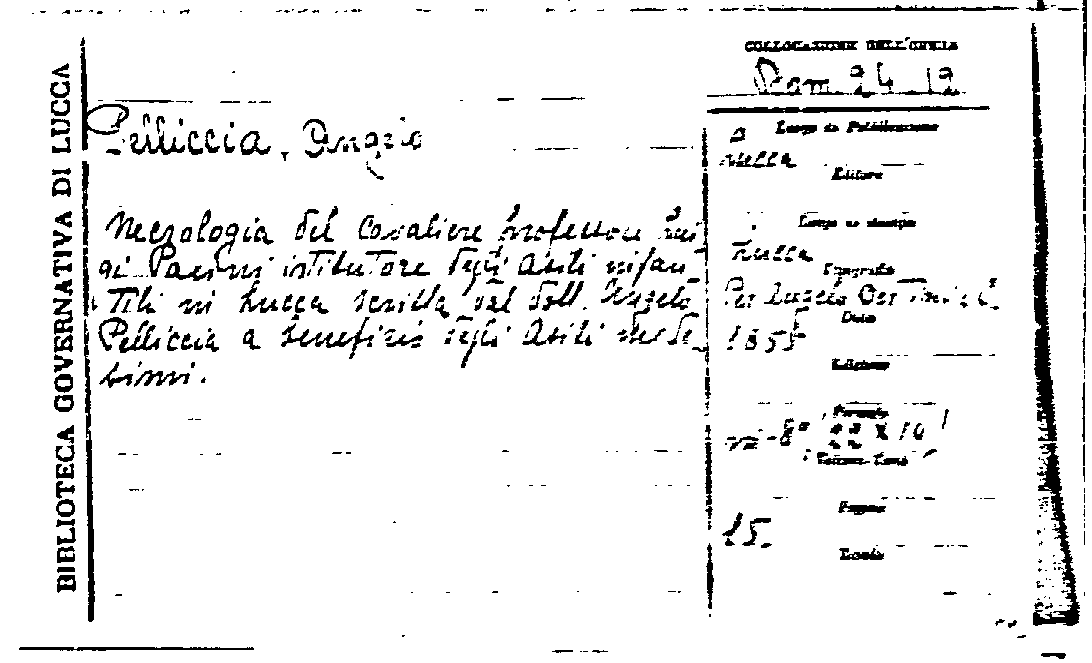 BIBLIOTECA GOVERNATIVA DI LUCCA
COLLOCAZIONE DELL'OPERA
Pam 24 12
Pelliccia, Angelo
Necrologia del cavaliere professore Lui-
gi Pacini istitutore degli Asili infan-
tili in Lucca scritta dal dott. Angelo
Pelliccia a benefizio degli Asili mede-
simi.
Luogo di Pubblicazione
Lucca
Editore
Luogo di stampa
Lucca
Tipografia
Per Angelo
Data
1855
Edizione
Formato
in-8°
Volume-Tomo
Pagine
15.